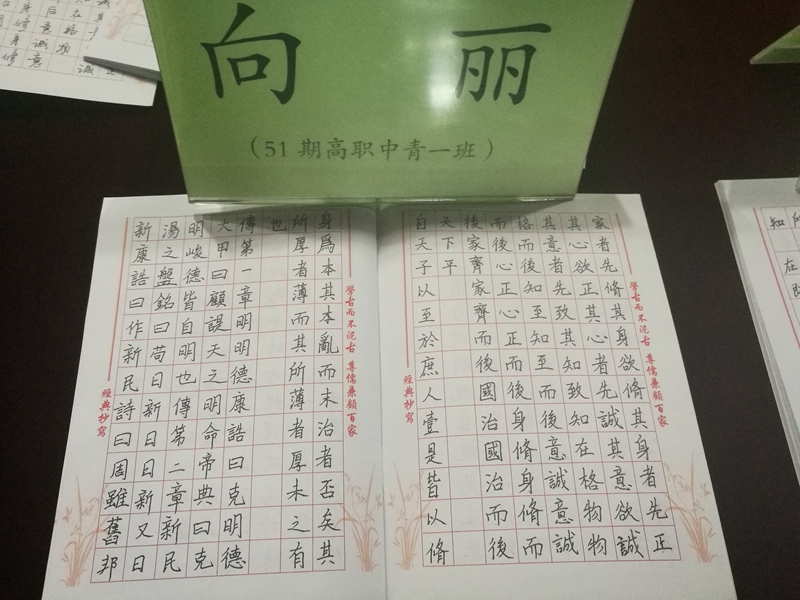 向 丽
（51 期高职中青一班）
學古而不泥古 尊儒兼顧百家
家者先脩其身欲脩其身者先正
其心欲正其心者先誠其意欲誠
其意者先致其知致知在格物物
格而後知至知至而後意誠意誠
而後心正心正而後身脩身脩而
後家齊家齊而後國治國治而後
天下平
自天子以至於庶人壹是皆以脩
經典抄寫
學古而不泥古 尊儒兼顧百家
身爲本其本亂而末治者否矣其
所厚者薄而其所薄者厚未之有
也
傳第一章明明德康誥曰克明德
大甲曰顧諟天之明命帝典曰克
明峻德皆自明也傳第二章新民
湯之盤銘曰苟日新日日新又日
新康誥曰作新民詩曰周雖舊邦
經典抄寫